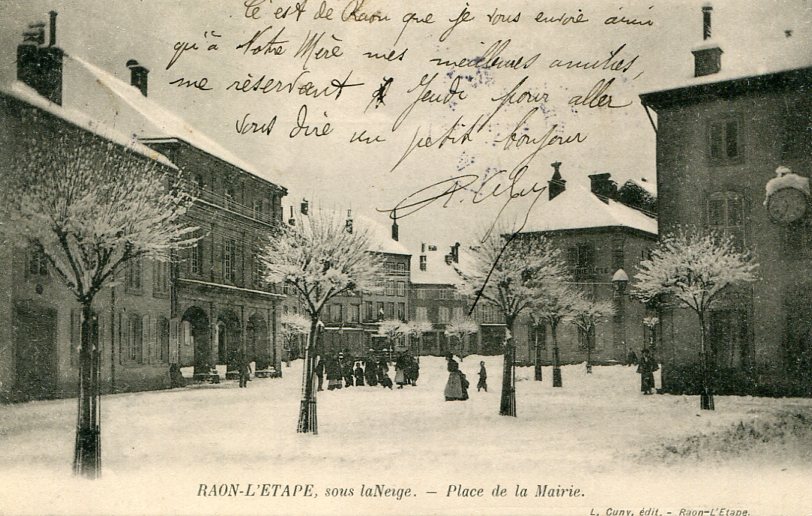 C'est de Raon que je vous envoie ainsi
qu'à Votre Mère mes meilleures amitiés,
me réservant Jeudi pour aller
vous dire un petit bonjour
RAON-L'ETAPE, sous laNeige. — Place de la Mairie.
L. Cuny, édit. - Raon-L'Etape.